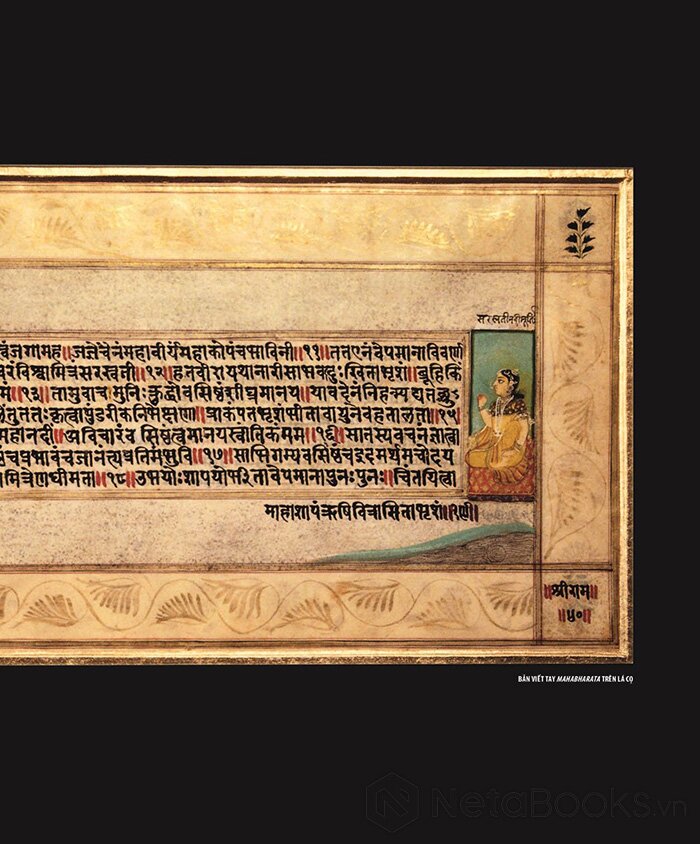 सरस्वतीनदीमूर्ति
त्वंजगामह॥जज्ञेचैनंमहावीर्यंमहाकोपंचभाविनी॥११॥ततएनंवेपमानाविवर्णा
वरंविश्वामित्रंसरस्वती॥१२॥हतवीरायथानारीसाभवद्दुःखिताभृशं॥ब्रूहिकिं
मं॥१३॥तामुवाचमुनिःक्रुद्धोवसिष्ठंशीघ्रमानय॥यावदेनंनिहन्म्यद्यतच्छ्रु
ततःकृत्वापुंडरीकनिभेक्षणा॥प्राकंपतभृशंभीतावायुनेवहतालता॥१५
महानदीं॥अविचारंवसिष्ठंत्वमानयस्वांतिकंमम॥१६॥सातस्यवचनंज्ञात्वा
चप्रभावंचजानंत्यप्रतिमंभुवि॥१७॥साभिगम्यवसिष्ठंचइदमर्थमचोदय
मित्रेणधीमता॥१८॥उभयोःशापयोर्भीतावेपमानापुनःपुनः॥चिंतयित्वा
माहाशापंऋषिवित्रासिताभृशं॥१९॥
॥श्रीराम॥
॥५०॥
BẢN VIẾT TAY MAHABHARATA TRÊN LÁ CỌ
NetaBooks.vn